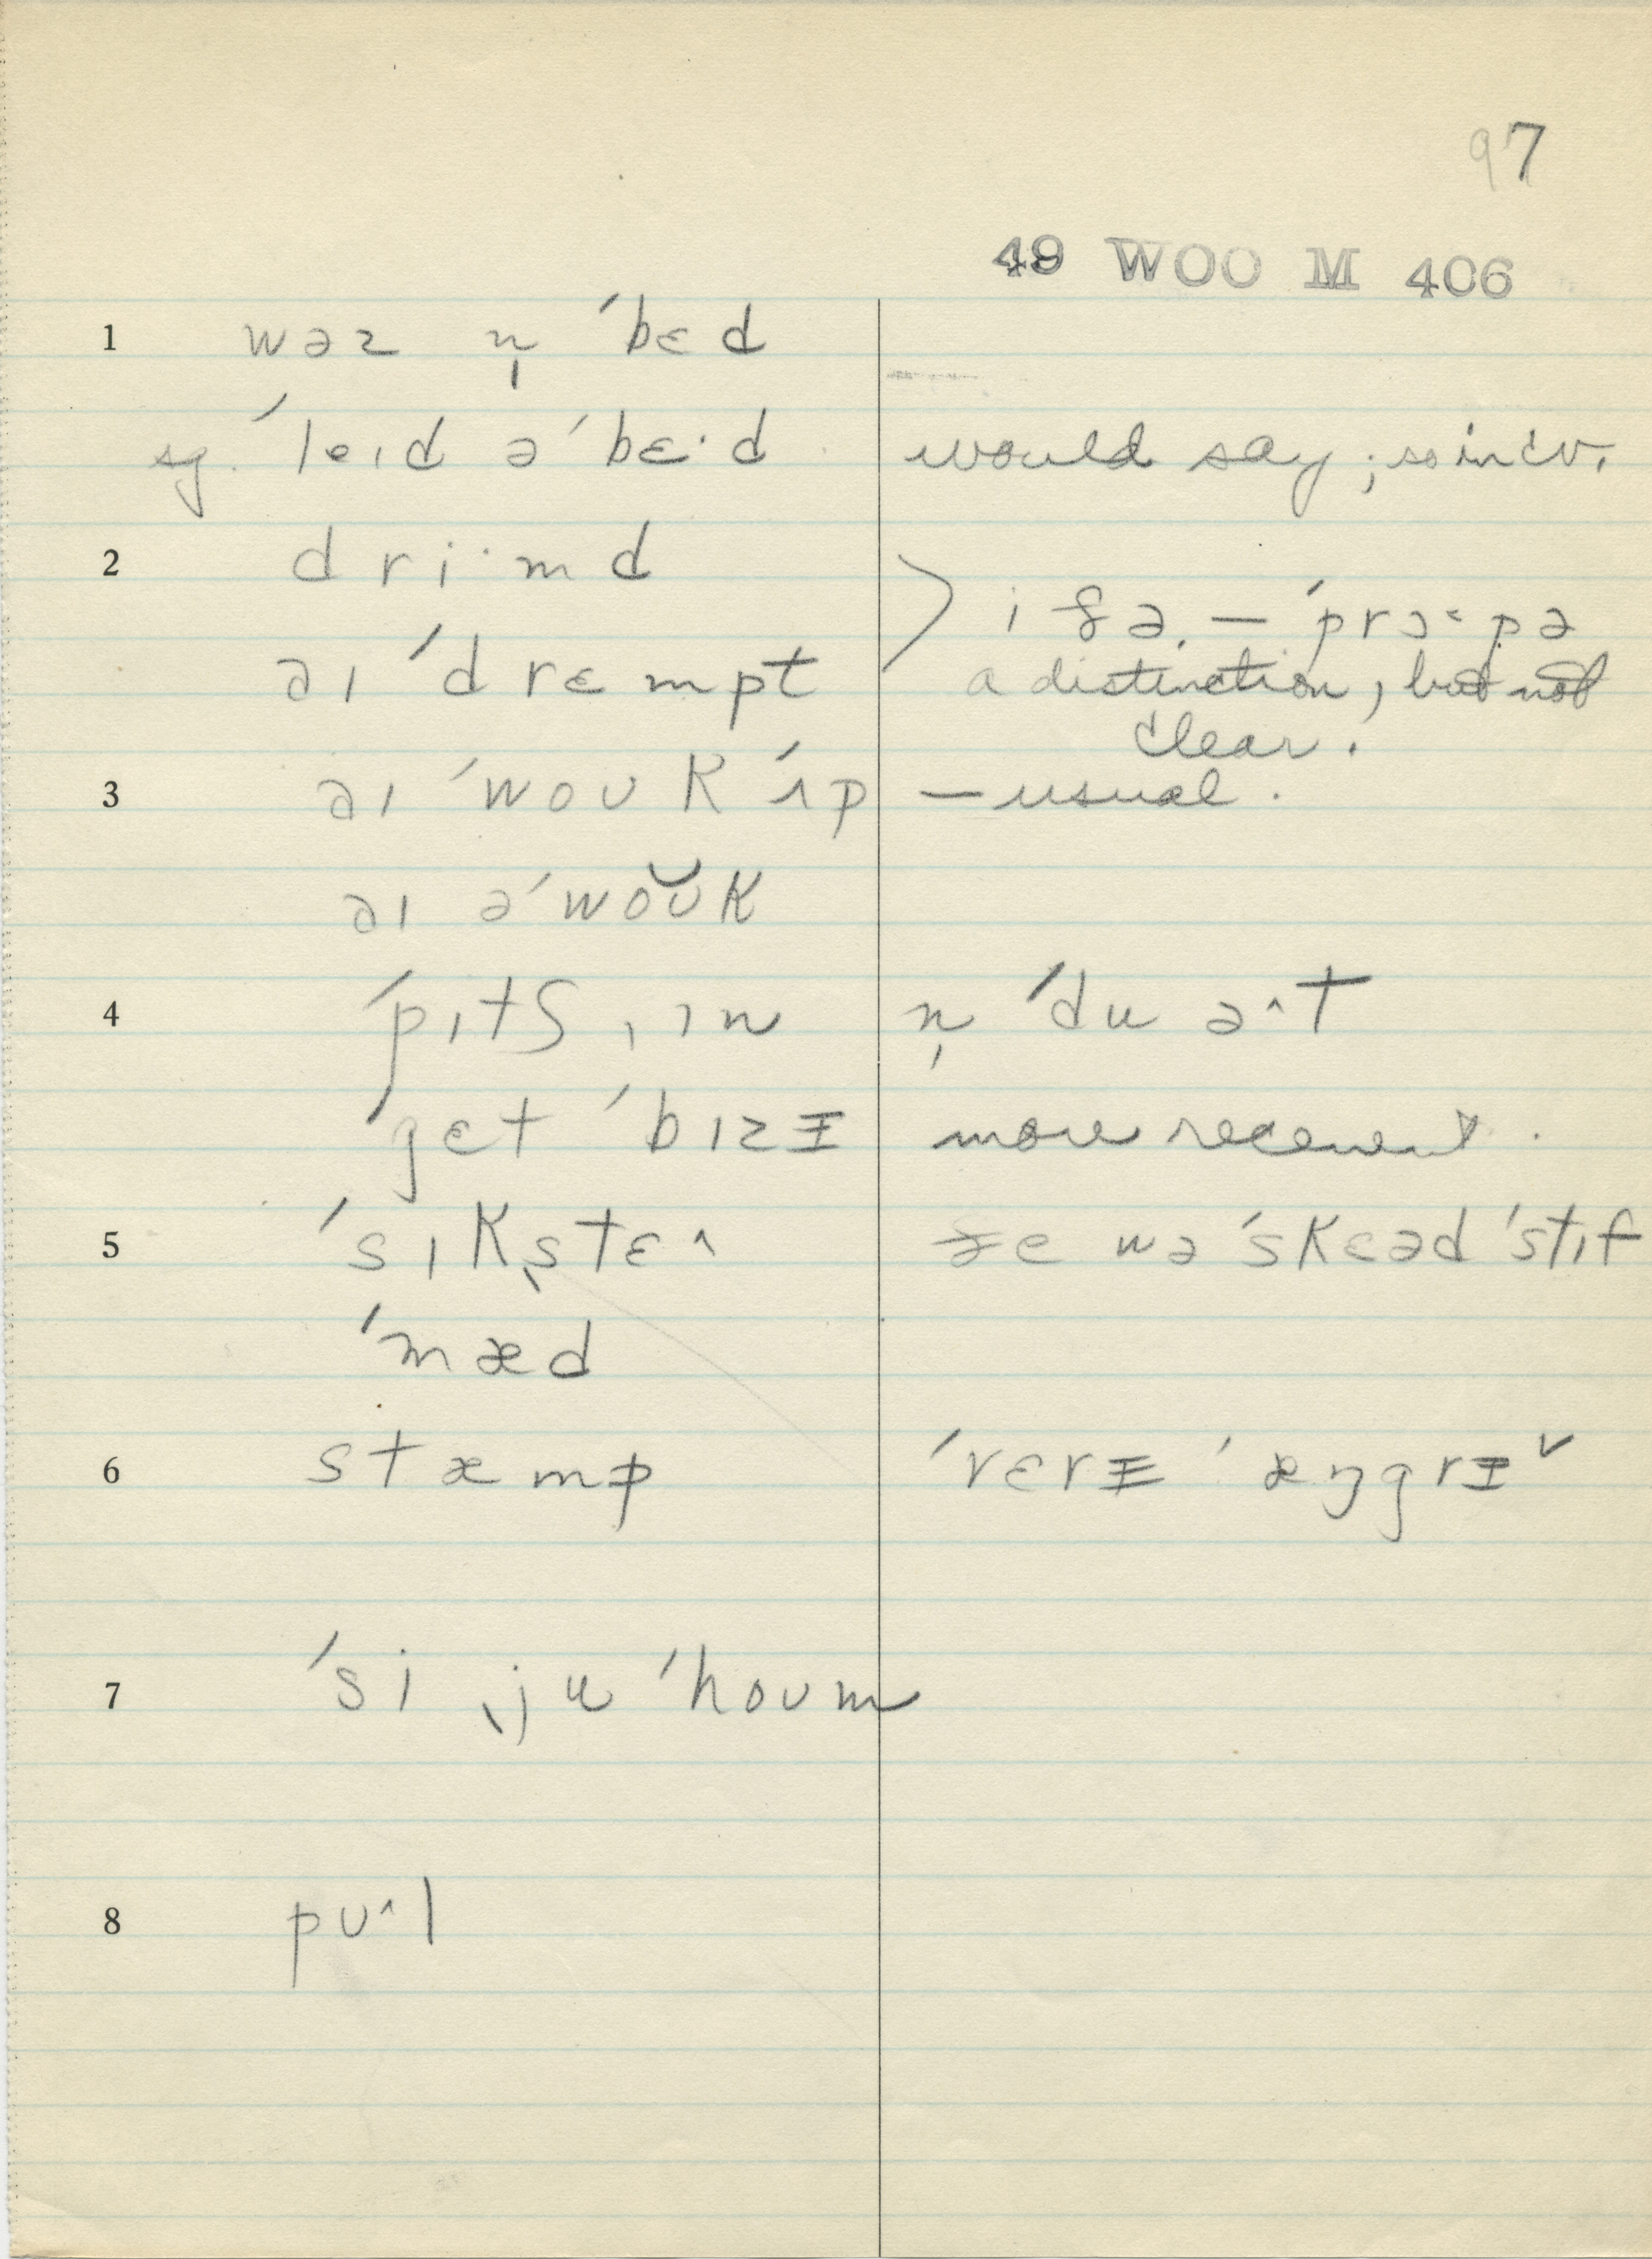 97
49 WOO M 406
1 wəz n̩ ˈbɛd
sg. ˈleɪd əˈbɛˑd would say; so in cv.
2 driˑmd
aɪ ˈdrɛmpt
a distinction, but not
clear.
3 aɪ ˈwoʊk ˈʌp — usual.
aɪ əˈwoʊ̆k
4 ˈpɪtʃ ˌɪn n̩ ˈdu ə^t
ˈgɛt ˈbɪzɪ more recent.
5 ˈsɪkˌstɛ^ wəˈskɛəd ˈstɪf
ˈmæd
6 stæmp ˈvɛrɪ ˈæŋgrɪˇ
7 ˈsi ˌju ˈhoʊm
8 pʊ^l